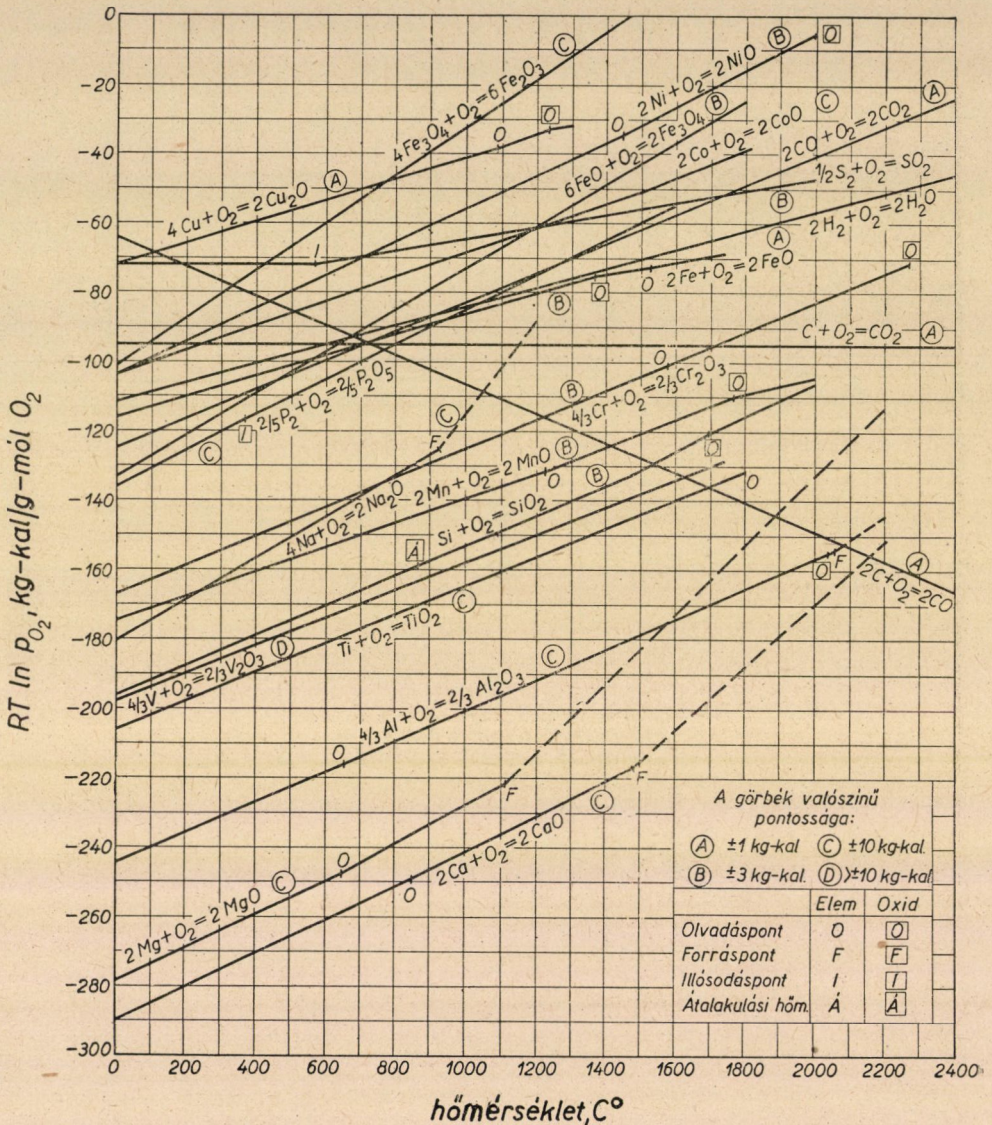 RT ln pO₂, kg-kal/g-mól O₂
0
-20
-40
-60
-80
-100
-120
-140
-160
-180
-200
-220
-240
-260
-280
-300
4Fe₃O₄+O₂=6Fe₂O₃ C
4Cu+O₂=2Cu₂O A
O
O
2Ni+O₂=2NiO B
O
O
6FeO+O₂=2Fe₃O₄ B
2Co+O₂=2CoO C
2CO+O₂=2CO₂ A
½S₂+O₂=SO₂ B
2H₂+O₂=2H₂O A
2Fe+O₂=2FeO B
O
O
I
C+O₂=CO₂ A
⅖P₂+O₂=⅖P₂O₅ C
I
4/3Cr+O₂=2/3Cr₂O₃ B
O
O
4Na+O₂=2Na₂O C
F
2Mn+O₂=2MnO B
O
O
Si+O₂=SiO₂ B
O
Á
4/3V+O₂=2/3V₂O₃ D
Ti+O₂=TiO₂ C
O
2C+O₂=2CO A
4/3Al+O₂=2/3Al₂O₃ C
O
O
F
2Mg+O₂=2MgO C
O
F
2Ca+O₂=2CaO C
O
F
A görbék valószínű
pontossága:
A ±1 kg-kal C ±10 kg-kal.
B ±3 kg-kal. D >±10 kg-kal
Elem Oxid
Olvadáspont O O
Forráspont F F
Illósodáspont I I
Átalakulási hőm. Á Á
0 200 400 600 800 1000 1200 1400 1600 1800 2000 2200 2400
hőmérséklet, C°